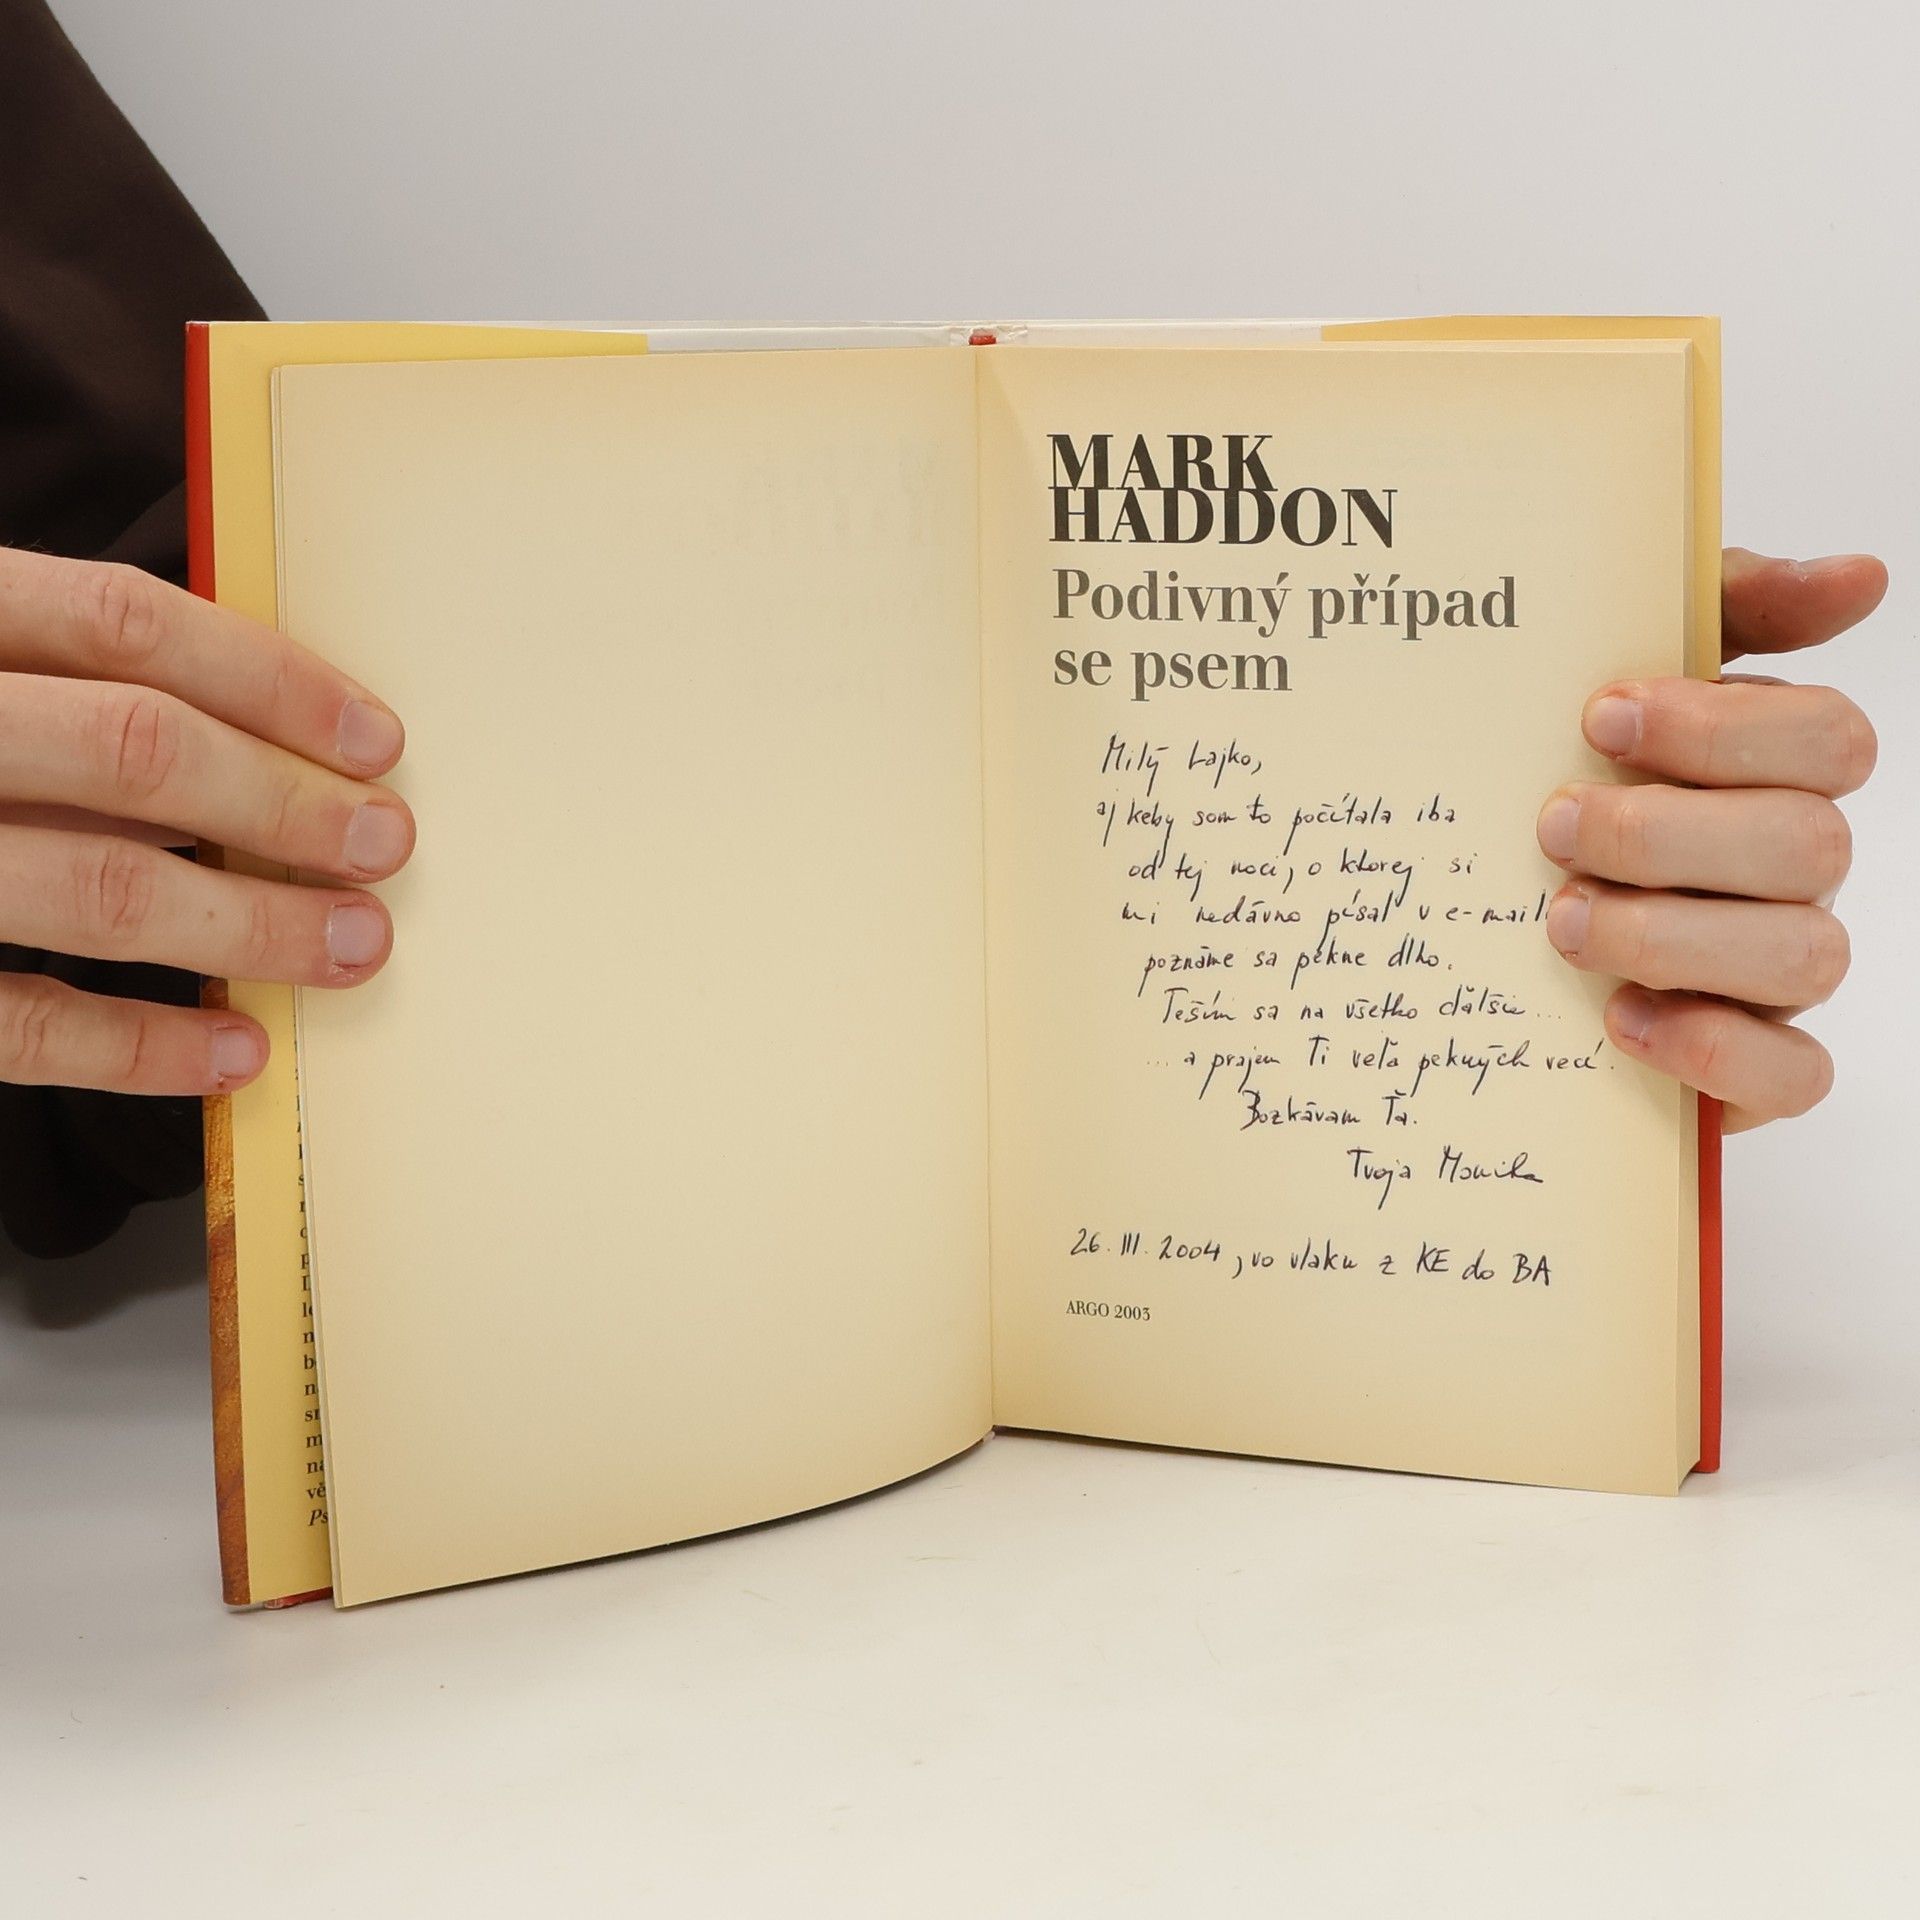 MARK
HADDON
Podivný případ
se psem
Milý Lajko,
aj keby som to počítala iba
od tej noci, o ktorej si
mi nedávno písal v e-maili
poznáme sa pekne dlho.
Teším sa na všetko ďalšie...
... a prajem Ti veľa pekných vecí.
Bozkávam Ťa.
Tvoja Monika
26. III. 2004, vo vlaku z KE do BA
ARGO 2003
vě
Ps